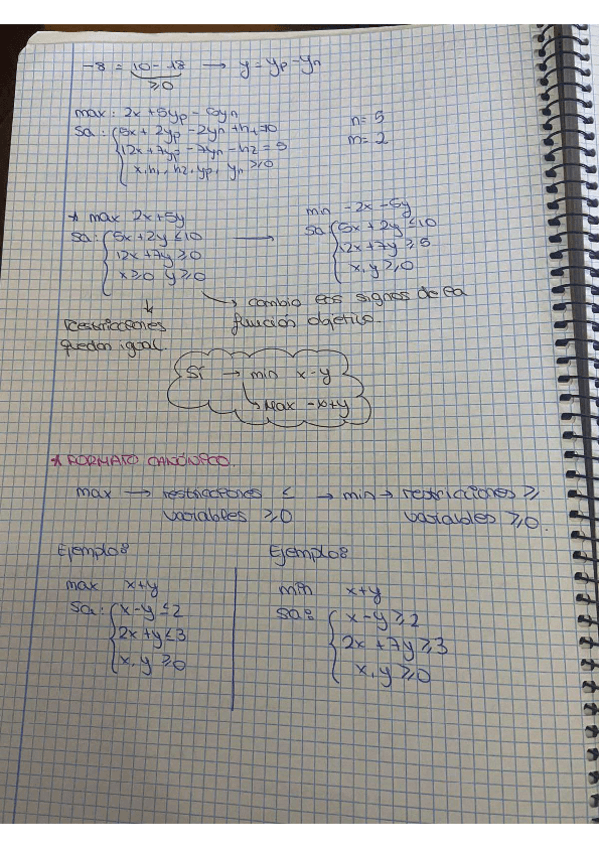 -8 = 10 - 18 → y = yp - yn
≥0
max: 2x + 5yp - 5yn
sa: 5x + 2yp - 2yn + h1 = 10
12x + 7yp - 7yn - h2 = 5
x, h1, h2, yp, yn ≥ 0
n = 5
m = 2
* max 2x + 5y
sa: 5x + 2y ≤ 10
12x + 7y ≥ 0
x ≥ 0 y ≥ 0
→
min -2x - 5y
sa 5x + 2y ≤ 10
12x + 7y ≥ 5
x, y ≥ 0
restricciones
quedan igual.
→ cambio los signos de la
función objetivo.
Si → min x - y
↳ Max -x + y
* FORMATO CANÓNICO.
max → restricciones ≤ → min → restricciones ≥
variables ≥ 0 variables ≥ 0.
Ejemplo:
max x + y
sa: x - y ≤ 2
2x + y ≤ 3
x, y ≥ 0
Ejemplo:
min x + y
sa: x - y ≥ 2
2x + 7y ≥ 3
x, y ≥ 0